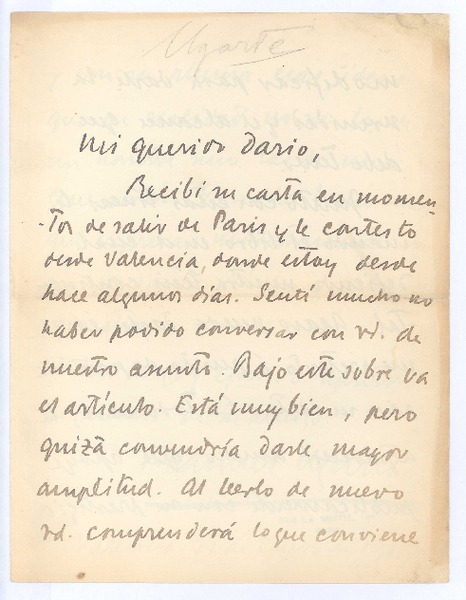 Ugarte
Mi querido Dario,
Recibí su carta en momen-
tos de salir de Paris y le contesto
desde Valencia, donde estoy desde
hace algunos días. Sentí mucho no
haber podido conversar con vd. de
nuestro asunto. Bajo este sobre va
el artículo. Está muy bien, pero
quizá convendría darle mayor
amplitud. Al leerlo de nuevo
vd. comprenderá lo que conviene